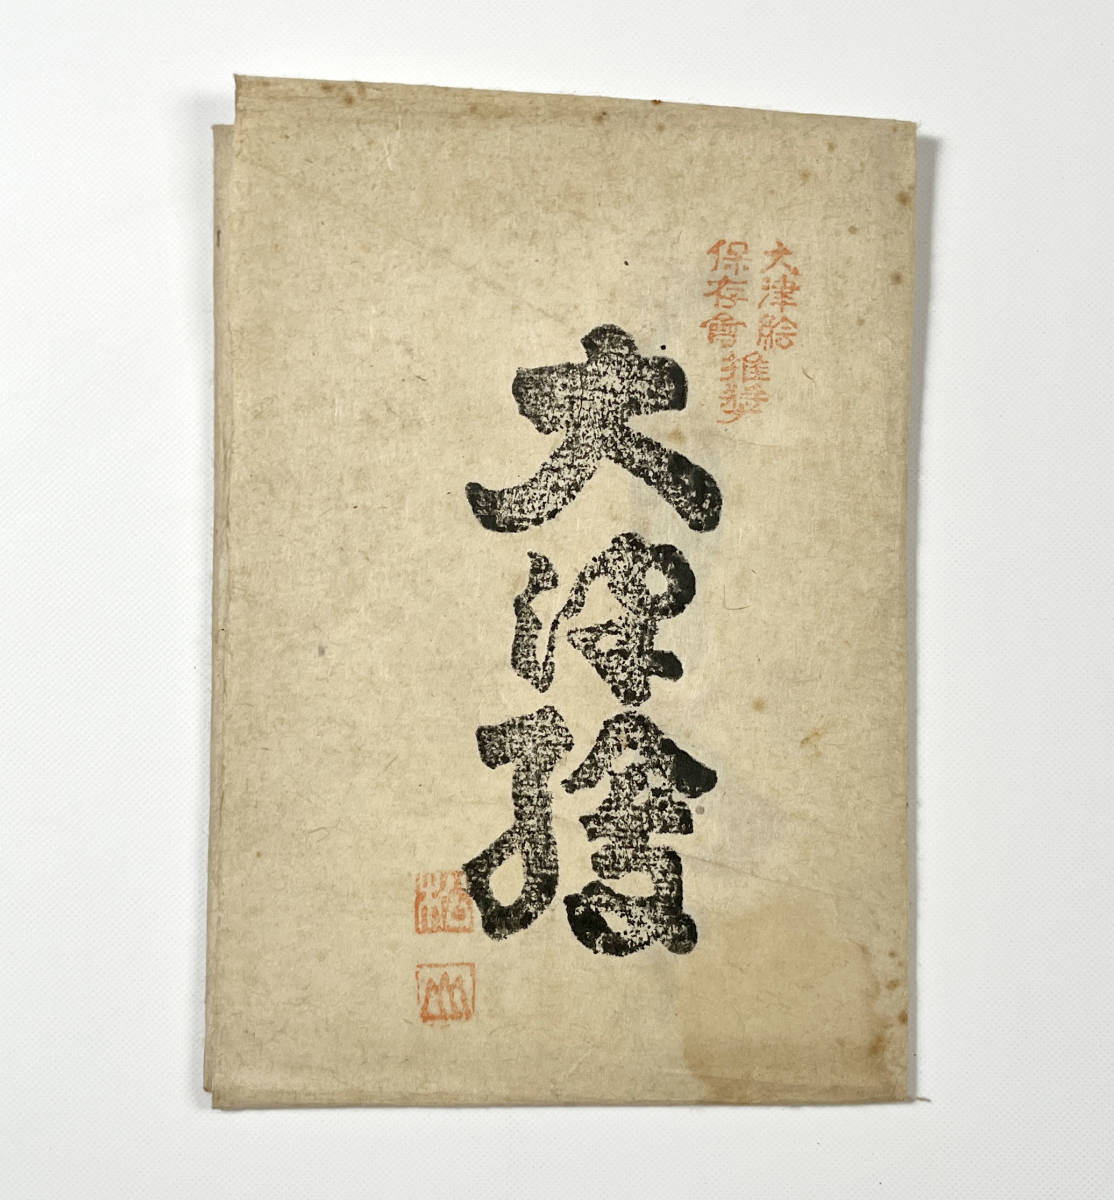 大津絵
保存會
推奨
大津繪
松
山